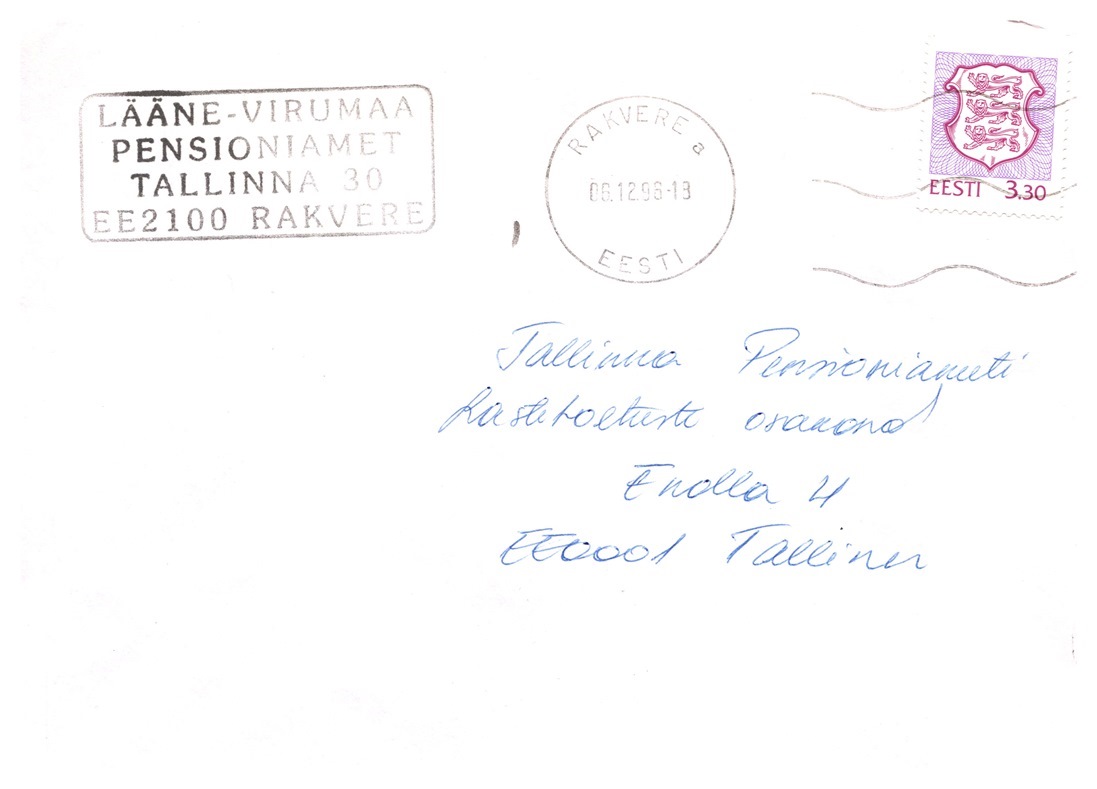 LÄÄNE-VIRUMAA
PENSIONIAMET
TALLINNA 30
EE2100 RAKVERE
RAKVERE a
06.12.96-18
EESTI
EESTI 3.30
Tallinna Pensioniameti
Lastetoetuste osakond
Endla 4
EE0001 Tallinn